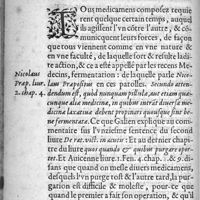 TOus medicamens composez requie
rent quelque certain temps, auquel
ils agissent l'vn côtre l'autre, & có-
muniquent leurs forces, de façon
que tous viennent comme en vne nature &
en vne faculté, de laquelle sort & resulte l'a-
ction, & ce a esté appellé par les recens Me-
Nicolaus
Præp. liur.
2. chap. 4.
decins, fermentation: de laquelle parle Nico-
laus Præpositus en ces parolles. Secundo atten-
dendum est, quòd nunquam pillulæ, aut etiam quæ-
cunque alia medicina, in quibus intrat diuersa me-
dicina laxatiua debent propinari quousque sint be-
ne fermentatæ. Ce que Galien explique au com-
mentaire sur l'vnziesme sentence du second
liure De rat. vict. in acut: Et au dernier chapi-
du liure quos quando & quibus purgare
Et Auicenne liure 1. Fen. 4. chap. & 9. di-
sans que quand on mesle diuers medicamens,
desquels l'vn purge tost & l'autre tard, la pur-
gation est difficile & moleste, pour-ce que
quand le premier a fait son operation, & qu'il